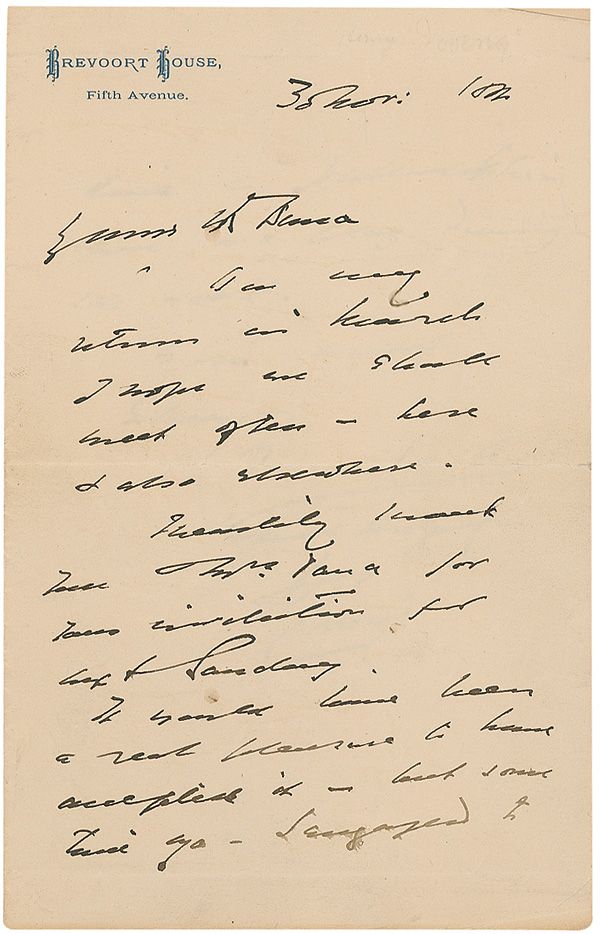 BREVOORT HOUSE,
Fifth Avenue.
30 Nov:
Dana
On my
return in March
I hope we shall
meet often – here
& also elsewhere.
Heartily thank
Mrs. Dana for
invitation for
next Sunday.
It would have been
a real pleasure to have
accepted it – but some
time ago – I engaged to